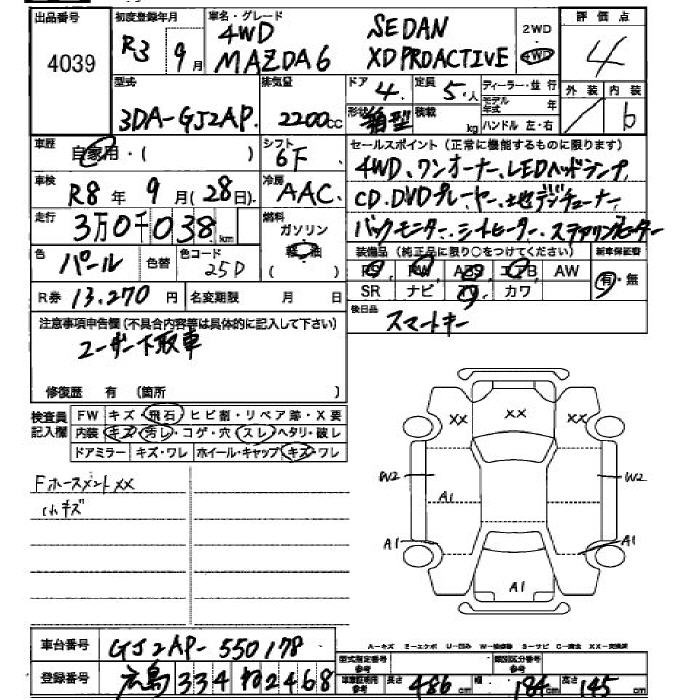 出品番号 4039
初度登録年月 R3 9月
車名・グレード 4WD SEDAN
MAZDA6 XD PROACTIVE
2WD・4WD
評価点 4
外装 内装 b
型式 3DA-GJ2AP
排気量 2200cc
ドア 4 定員 5人
形状 箱型 積載 kg
ディーラー・並行
モデル年式 年
ハンドル 左・右
車歴 自家用・( )
シフト 6F
車検 R8年 9月(28日)
冷房 AAC
走行 3万0千038km
燃料 ガソリン 軽油 ( )
色 パール 色替 色コード 25D
R券 13,270円 名変期限 月 日
セールスポイント(正常に機能するものに限ります)
4WD、ワンオーナー、LEDヘッドランプ
CD.DVDプレーヤー、地デジチューナー
バックモニター、シートヒーター、ステアリングヒーター
装備品(純正品に限り○をつけてください) 新車保証書
PS PW ABS エアB AW 有・無
SR ナビ カワ
後日品 スマートキー
注意事項申告欄(不具合内容等は具体的に記入して下さい)
ユーザー下取車
修復歴 有(箇所 )
検査員記入欄
FW キズ・飛石・ヒビ割・リペア跡・X要
内装 キズ・汚レ・コゲ・穴・スレ・ヘタリ・破レ
ドアミラー キズ・ワレ ホイール・キャップ キズ・ワレ
FホースメントXX
小キズ
XX XX XX
W2 W2
A1
A1 A1
A1
A-キズ E-エクボ U-凹み W-補修跡 S-サビ C-腐食 XX-交換済
車台番号 GJ2AP-550178
登録番号 広島 334 ね 2468
型式指定番号 参考 類別区分番号 参考
車庫証明用 参考 長さ 486cm 幅 184cm 高さ 145cm